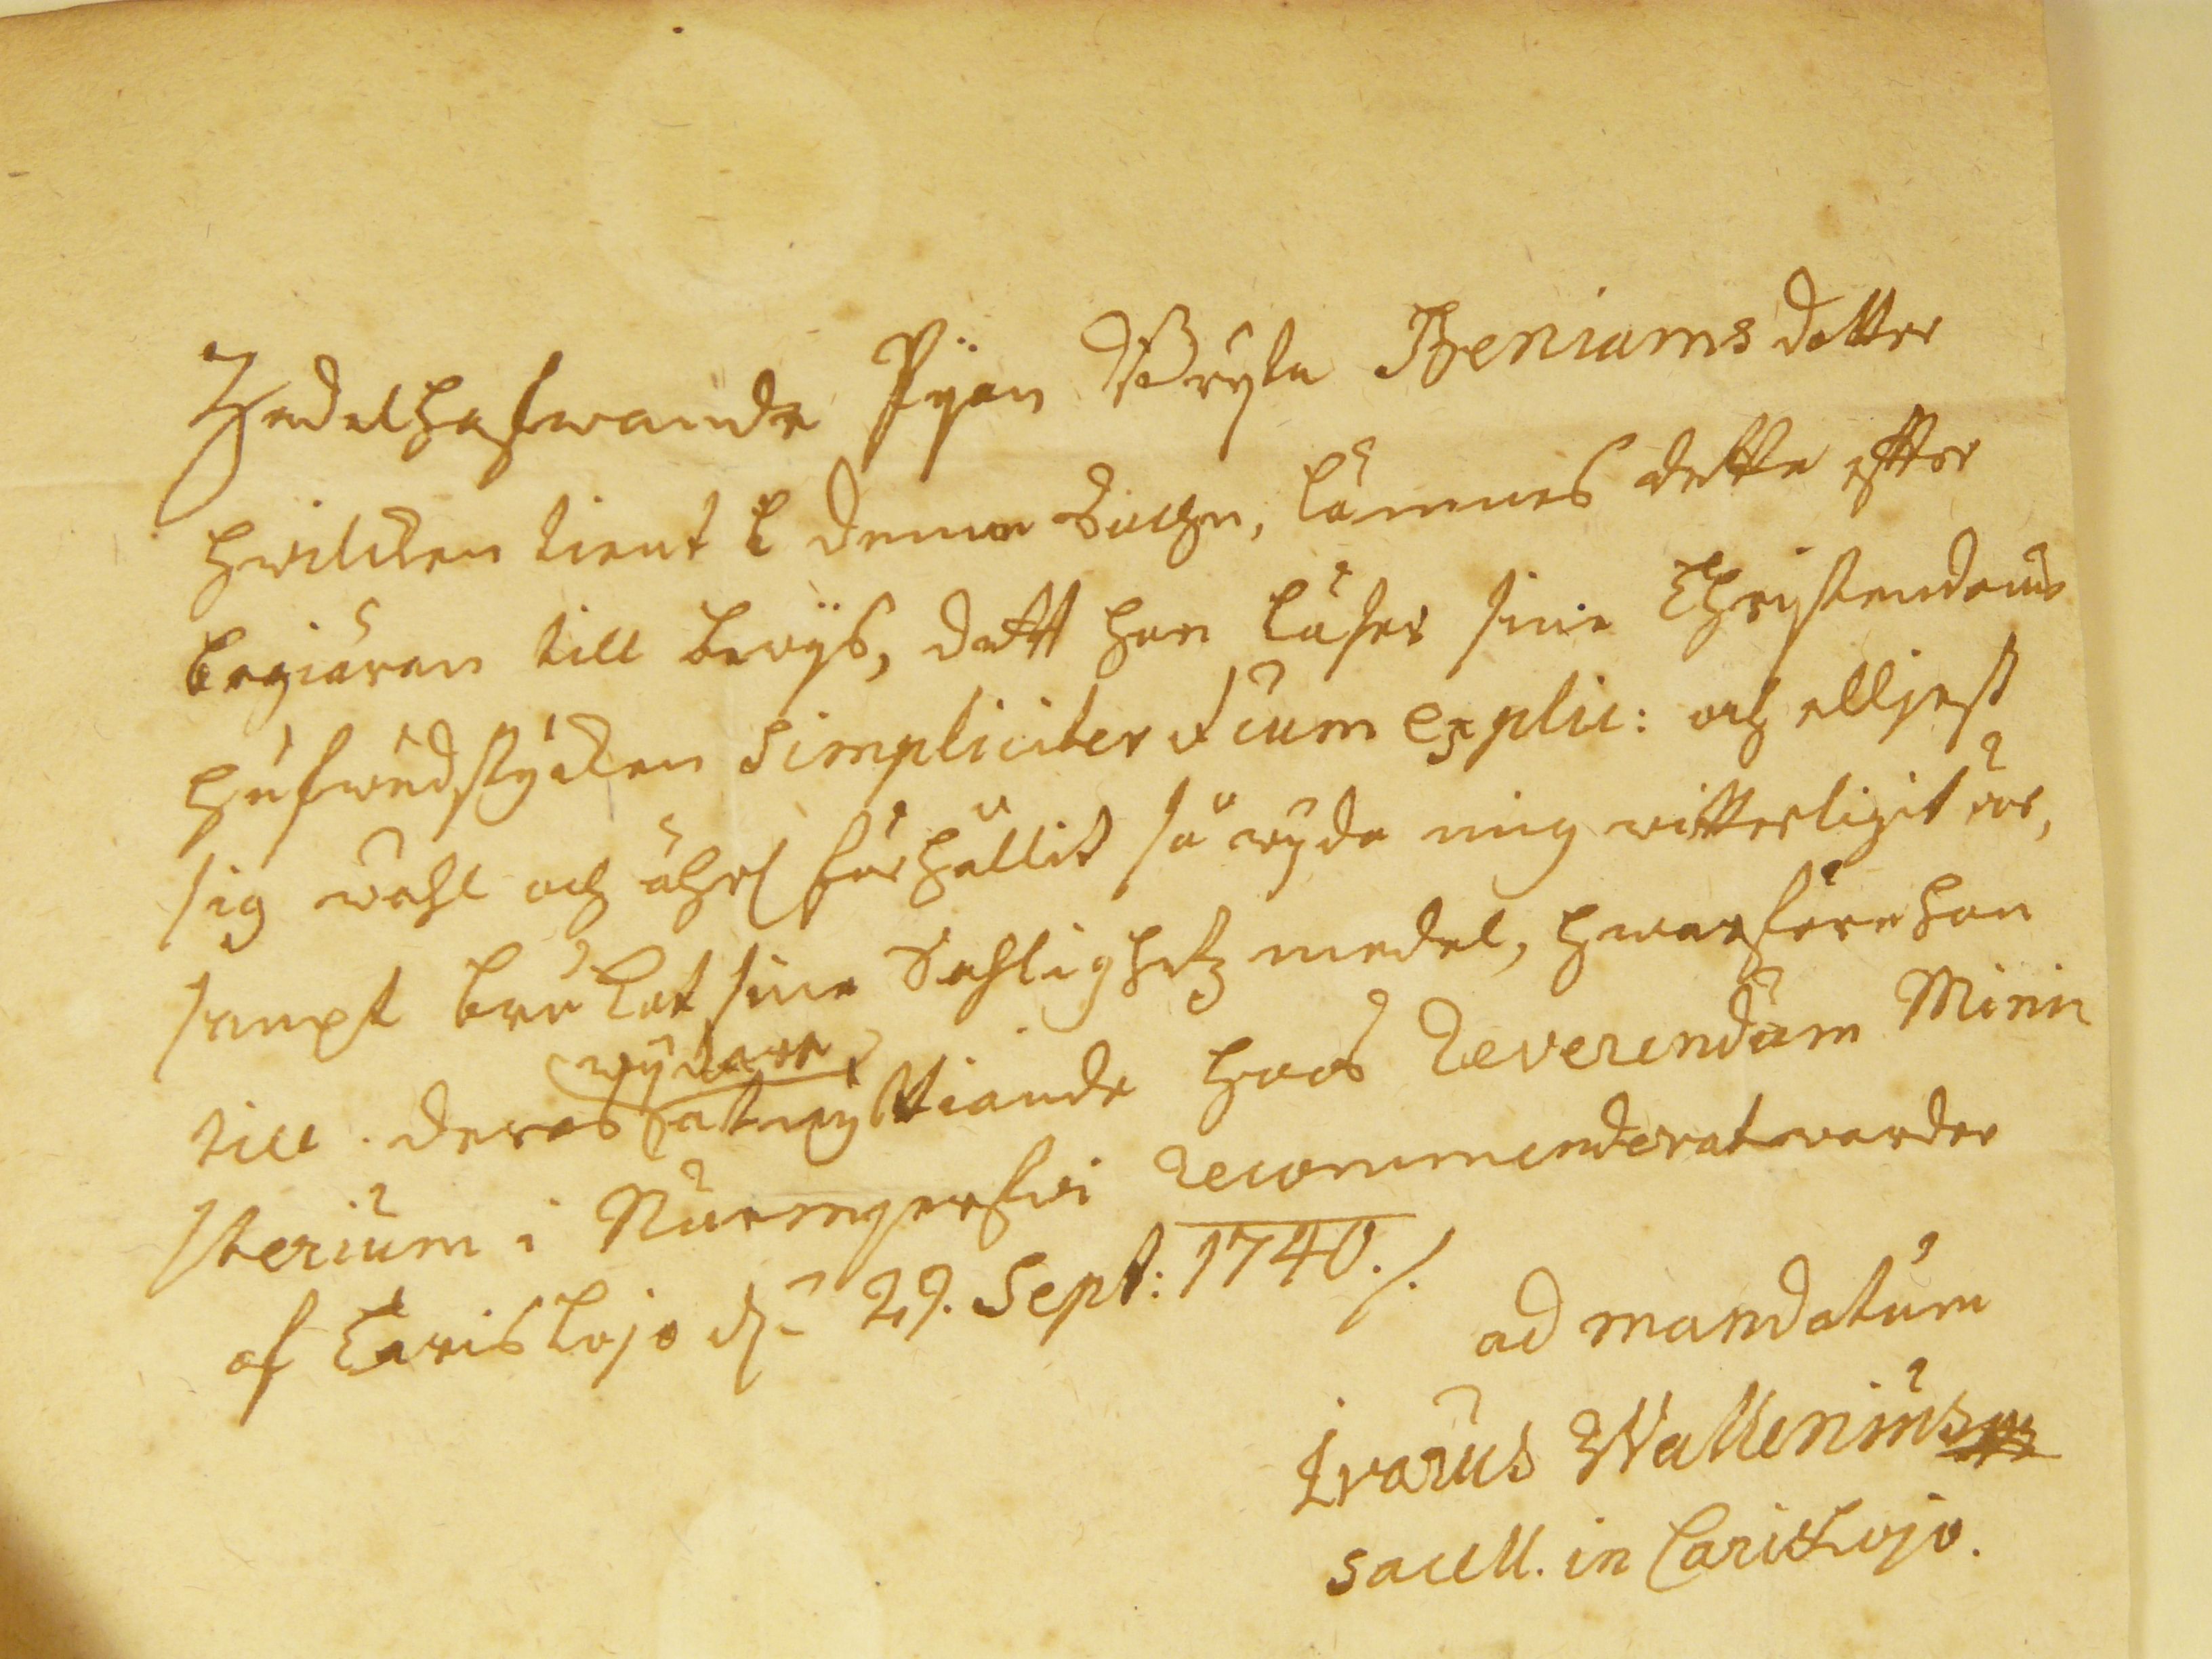 Zedelhafwande Pÿan Brÿta Beniams dotter
hwilcken tient i denna Sockn, lämnes detta efter
begiäran till bewÿs, dätt hon läser sina Christendoms
hufwudstÿcken simpliciter et cum explic: och elljest
sig wähl och ährl förhållit så wÿda mig witterligit är,
sampt brukat sina Sahlighetz medel, hwarföre hon
till deras wÿdare atnÿttiande hoos Reverendum Mini
sterium i Nurmyerfwi recommenderat warder
af Carislojo dn 29. Sept: 1740./.
ad mandatum
Ivarus Wallenius
sacell. in Carislojo.